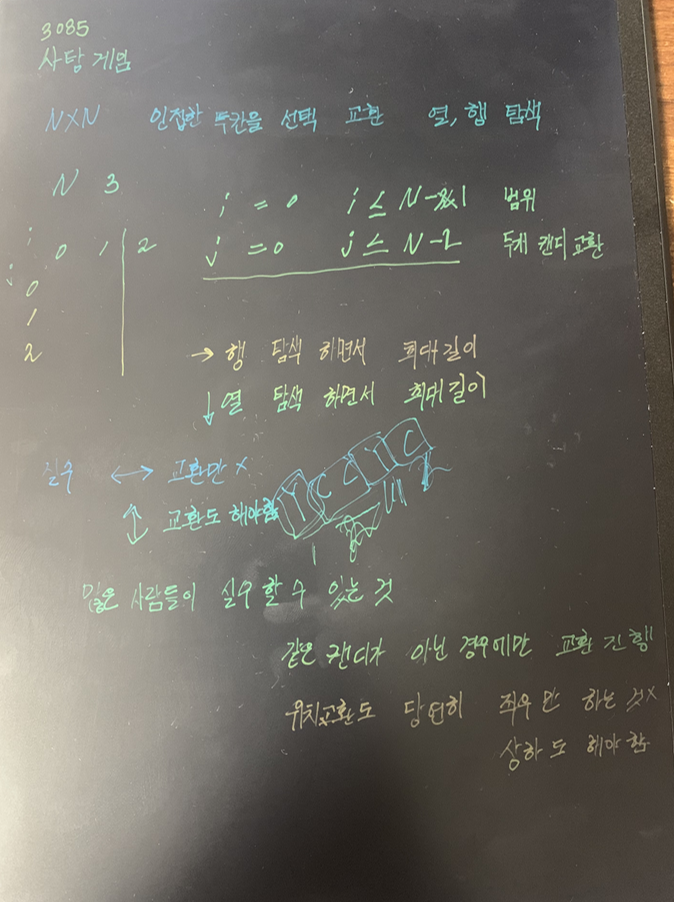 3085
사탕 게임
N×N 인접한 두칸을 선택 교환 열, 행 탐색
N 3
i = 0 i ≤ N-1 범위
j = 0 j ≤ N-2 두개 캔디 교환
i
0 1 2
j
0
1
2
→ 행 탐색 하면서 최대길이
↓ 열 탐색 하면서 최대길이
실수 ↔ 교환만 ×
Y C C Y C
↕ 교환도 해야함
1
많은 사람들이 실수 할 수 있는 것
같은 캔디가 아닌 경우에만 교환 진행
위치교환도 당연히 좌우만 하는 것×
상하도 해야 함